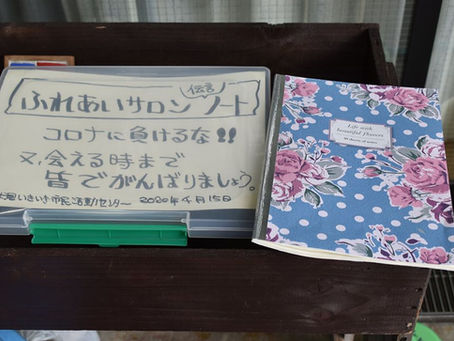 伝言
ふれあいサロン ノート
コロナに負けるな!!
又、会える時まで
皆でがんばりましょう。
いきいき市民活動センター 2020年4月15日
Life with
beautiful flowers